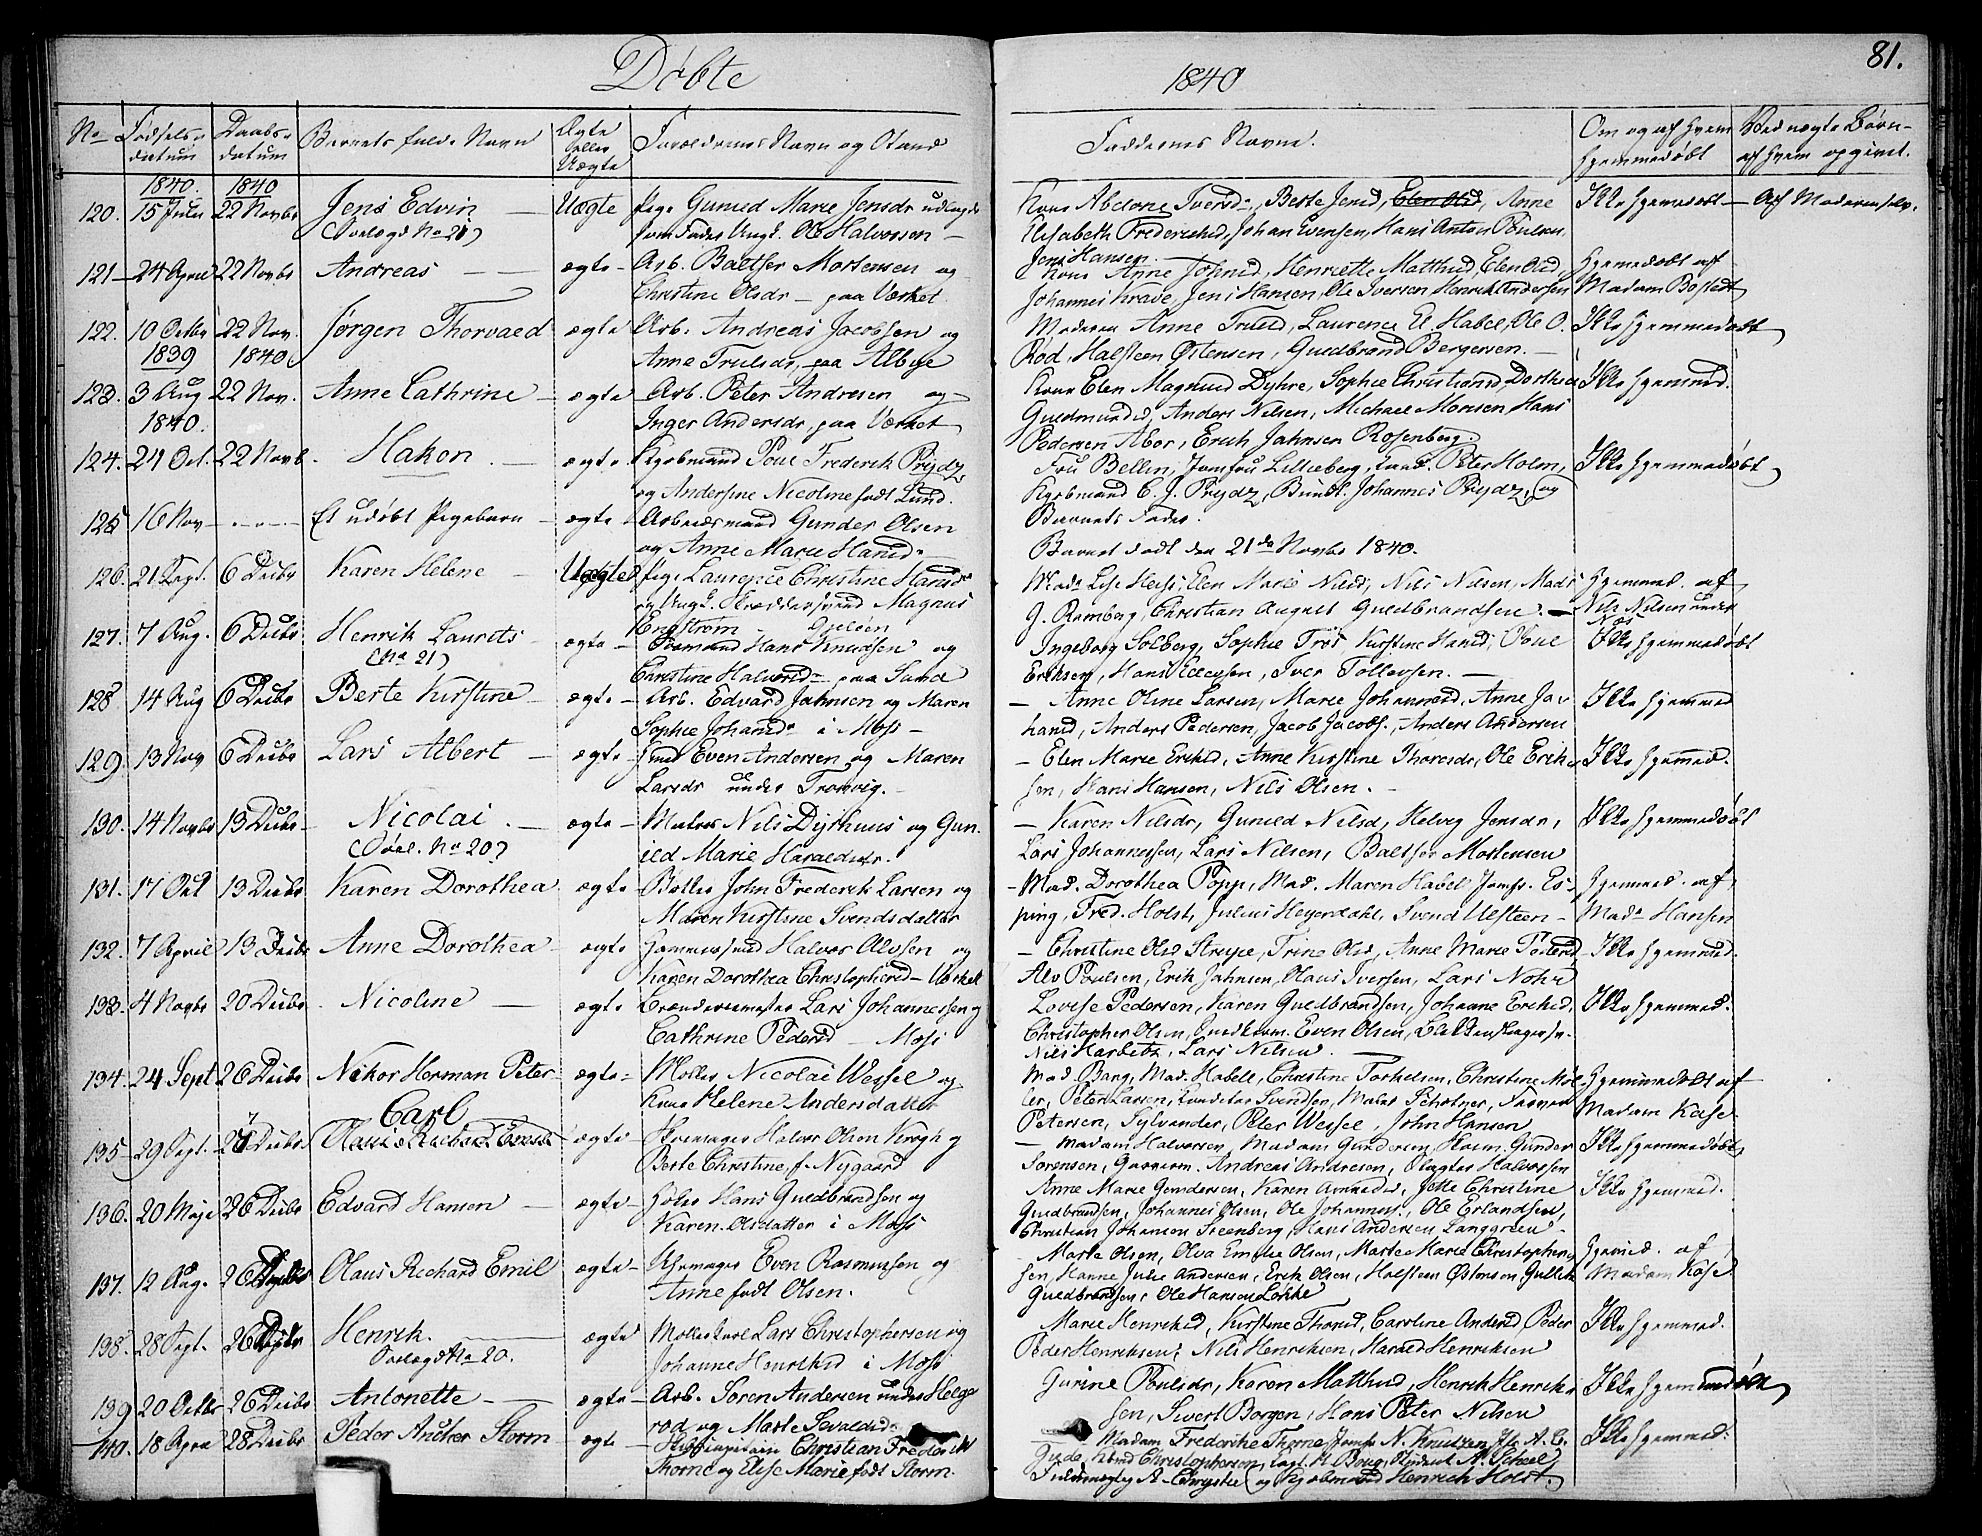 Døbte
1840
81.
No Fødsels-datum Daabs-datum Barnets fulde Navn Ægte eller Uægte Forældrenes Navn og Stand
Faddernes Navne. Om og af hvem hjemmedøbt Ved uægte Børn af hvem opgivet.
1840. 1840
120. 15 Julii 22 Novbr Jens Edvin — Uægte Pige Gunild Marie Jensdr udlagde
(Ovelægs No 21) som Fader Ungk. Ole Halvorsen —
Kone Abelone Iversdr, Berte Jensd, Elen Olsd, Anne Ikke hjemmedøbt — Af Moderen selv.
Elisabeth Frederiksd, Johan Evensen, Hans Anton Poulsen
Jens Hansen. —
121 — 24 April 22 Novbr Andreas — — ægte — Arb. Baltser Mortensen og
Christine Olsdr — paa Værket
Kone Anne Johnsd, Henriette Matthisd, Elen Olsd, Hjemmedøbt af
Johannes Krave, Jens Hansen, Ole Iversen Henrik Andersen Madam Bostedt
122. 10 Octbr 22 Nov. Jørgen Thorvald ægte Arb. Andreas Jacobsen og
1839 1840 Anne Trulsdr, paa Albye
Moderen Anne Trulsd, Laurence El. Habel, Ole O. Ikke hjemmedøbt
Rød, Halsteen Østensen, Guldbrand Bergersen. —
123. 3 Aug 22 Nov. Anne Cathrine — ægte Arb. Peter Andresen og
1840. Inger Andersdr, paa Værket
Kone Elen Magnusd Dyhre, Sophie Christiansd, Dorthea Ikke hjemmed.
Guldmundsd, Anders Nilsen, Michael Monsen, Hans
Pedersen Abor, Erich Jahnsen Rosenberg.
124. 21 Oct. 22 Novb. Hakon. — ægte. Kjøbmand Poul Frederik Prydz
og Andersine Nicoline født Lund.
Fru Bellin, Jomfru Lillieberg, Peter Holm, Ikke hjemmedøbt
Kjøbmand C. J. Prydz, Johannes Prydz, og
Barnets Fader.
125 16 Nov — . — . — Et udøbt Pigebarn — ægte Arbeidsmand Gunder Olsen
og Anne Marie Hansd. —
Barnet født den 21de Novbr 1840.
126. 21 Sept. 6 Decbr Karen Helene — Uægte Pige Laurence Christine Hansd
og Ungk. Skræddersvend Magnus
Engstrøm —
Mad. Lise Heis, Elen Marie Nilsd, Nils Nilsen, Mads Hjemmed. af
G. Ramberg, Christian August Guldbrandsen. — Nils Nilsen under
Næs
127. 7 Aug. 6 Decbr Henrik Laurits — ægte — Hans Knudsen og
(No 21) Christine Halvorsd — paa Sand
Ingeborg Solberg, Sophie Kirstine Hansd, Ikke hjemmedøbt
Eriksen, Hans Ellevsen, Iver Tollevsen. —
128 14 Aug 6 Decbr Berte Kirstine — ægte — Arb. Edvard Jahnsen og Maren
Sophie Johansd i Moss —
— Anne Oline Larsen, Marie Johannesd, Anne Jo- Ikke hjemmed
hansd, Anders Pedersen, Jacob Jacobs., Anders Andersen
129. 13 Nov 6 Decbr Lars Albert — ægte — Even Andersen og Maren
Larsdr under Tronvig. —
— Elen Marie Eriksd, Anne Kirstine Thoresdr, Ole Erik- Ikke hjemmed.
sen, Hans Hansen, Nils Olsen. —
130. 14 Novbr 13 Decbr — Nicolai. — ægte — Matros Nils Dyrhuus og Gun-
(Ovel. No 20) ild Marie Haraldsdr.
— Karen Nilsdr, Gunild Nilsd, Helvig Jensdr, Ikke hjemmedøbt
Lars Johannessen, Lars Nilsen, Baltser Mortensen
131. 17 Oct 13 Decbr Karen Dorothea ægte — Bødker John Frederik Larsen og
Maren Kirstine Svendsdatter
— Mad. Dorothea Popp, Mad. Maren Habel Jomfr. Es- Hjemmed. af
ping, Fred. Holst, Julius Heyerdahl, Svend Ulsteen — Mad. Hansen
132. 7 April 13 Decbr Anne Dorothea — ægte Hammersmed Halvor Olvsen og
Karen Dorothea Christophersd — Værket
— Christine Olsd Strype, Trine Olsd, Anne Marie Pedersd, Ikke hjemmed.
Alv Poulsen, Erik Jahnsen, Olaus Iversen, Lars Nohr
133. 4 Novbr 20 Decbr. Nicoline — ægte Brænderiemester Lars Johannessen og
Cathrine Pedersd — Moss
Lovise Pedersen, Karen Guldbrandsen, Johanne Eriksd, Ikke hjemmed.
Christopher Olsen, Even Olsen,
Nils Harbitz, Lars Nilsen. —
134. 24 Sept 26 Decbr Nikor Herman Peter — ægte — Møller Nicolai Wessel og
Kone Helene Andersdatter
Mad. Bang, Mad. Habell, Christine Torkelsen, Christine Møl- Hjemmedøbt af
ler, Peter Larsen, Svendsen, Schøtner, Madam Kase.
Petersen, Sylvander, Peter Wessel, John Hansen
Carl
135 — 29 Sept. 27 Decbr. Olaus Richard Everde ægte — Skomager Halvor Olsen Krogh og
Berte Christine f. Nygaard
— Madam Halvorsen, Madam Gundersen, Gunder Ikke hjemmedøbt
Sørensen, Andreas Andresen, Halvorsen
136. 20 Maje 26 Decbr Edvard Hansen — ægte — Høker Hans Guldbrandsen og
Karen Olsdatter i Moss
Anne Marie Gundersen, Karen Jette Christine Ikke hjemmed.
Guldbrandsen, Johannes Olsen, Ole Johannes., Ole Erlandsen,
Christian Johansen Steenberg, Hans Andersen Langgreen
137. 12 Aug. 26 Decbr Olaus Richard Emil ægte — Uhrmager Even Rasmussen og
Anne født Olsen.
Marte Olsen, Olva Emilie Olsen, Marte Marie Christopher- Hjemmed. af
sen, Hanne Julie Andersen, Erik Olsen, Halsteen Østensen, Gullik Madam Kose
Guldbrandsen, Ole Hansen Løkke
138. 28 Sept. 26 Decbr Henrik. — ægte Møllerkarl Lars Christophersen og
Ovelægs No 20. Johanne Henriksd i Moss
Marie Henriksd, Kirstine Thorsd, Caroline Andersd, Peder Ikke hjemmed.
Peder Henriksen, Nils Henriksen, Harald Henriksen
139 20 Octbr 26 Decbr Antonette — ægte — Arb. Søren Andersen under Helge
rød og Marte Sevaldsd.
Gurine Poulsdr, Karen Matthisd, Henrik Henrik- Ikke hjemmedøbt
sen, Sivert Borgen, Hans Peter Nilsen
140. 18 April 28 Decbr Peder Ancher Storm ægte — Skibscapitain Christian Frederik
Thorne og Elise Marie født Storm.
— Madam Frederikke Thorne, Jomfr N. Knutzen, A. C. Ikke hjemmed:
Gude, Christophersen, H. Boug, A. Scheel,
A. Chrystie og Kjøbmand Henrich Holst.